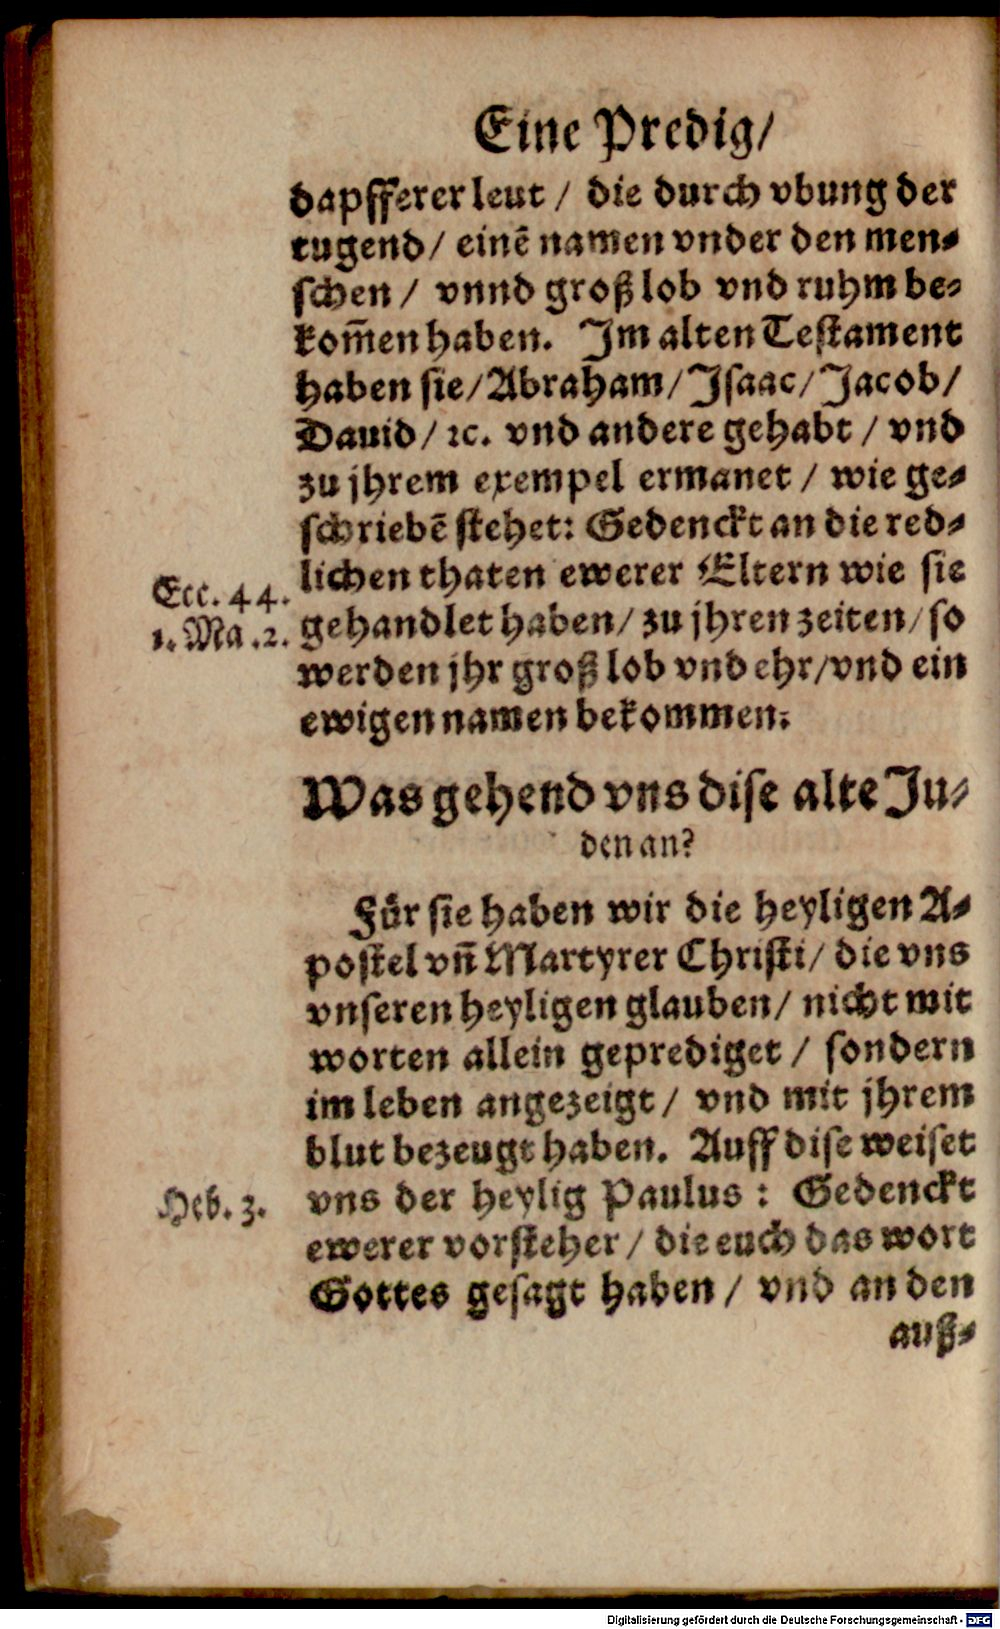 Eine Predig/
dapfferer leut / die durch vbung der
tugend/ einẽ namen vnder den men-
schen / vnnd groß lob vnd ruhm be-
kom̃en haben. Im alten Testament
haben sie/Abraham/Isaac/Jacob/
Dauid/ ꝛc. vnd andere gehabt / vnd
zu jhrem exempel ermanet / wie ge-
schriebẽ stehet: Gedenckt an die red-
lichen thaten ewerer Eltern wie sie
Ecc. 44.
gehandlet haben/ zu jhren zeiten/ so
1. Ma .2.
werden jhr groß lob vnd ehr/vnd ein
ewigen namen bekommen.
Was gehend vns dise alte Ju-
den an?
Fuͤr sie haben wir die heyligen A-
postel vñ Martyrer Christi/ die vns
vnseren heyligen glauben/ nicht mit
worten allein geprediget / sondern
im leben angezeigt / vnd mit jhrem
blut bezeugt haben. Auff dise weiset
vns der heylig Paulus : Gedenckt
Heb. 3.
ewerer vorsteher / die euch das wort
Gottes gesagt haben / vnd an den
auß-
Digitalisierung gefördert durch die Deutsche Forschungsgemeinschaft - DFG